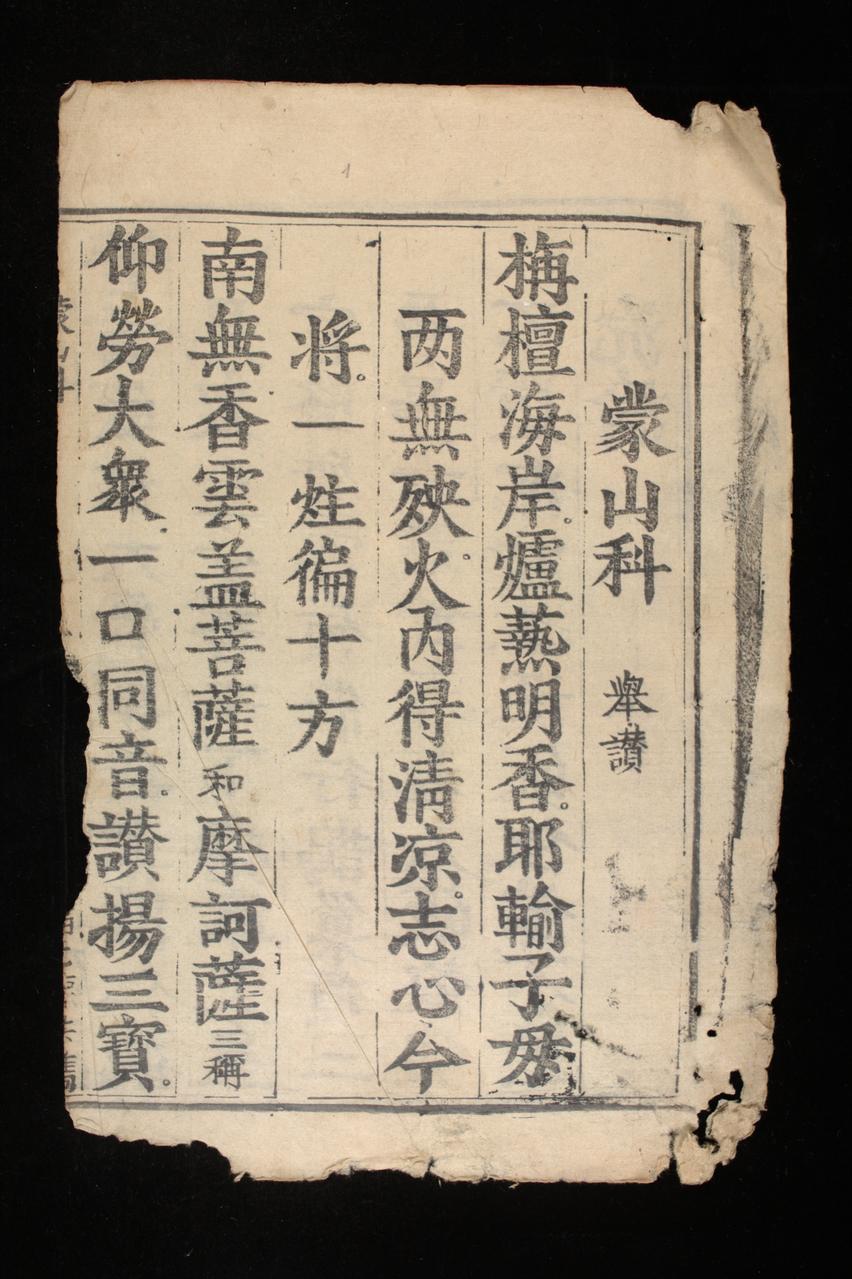 蒙山科 舉讃
栴檀海岸爐爇明香耶輸子母
两無殃火内得淸凉志心今
将一炷徧十方
南無香雲盖菩薩和摩訶薩三稱
仰勞大衆一口同音讃揚三寶
蒙山科